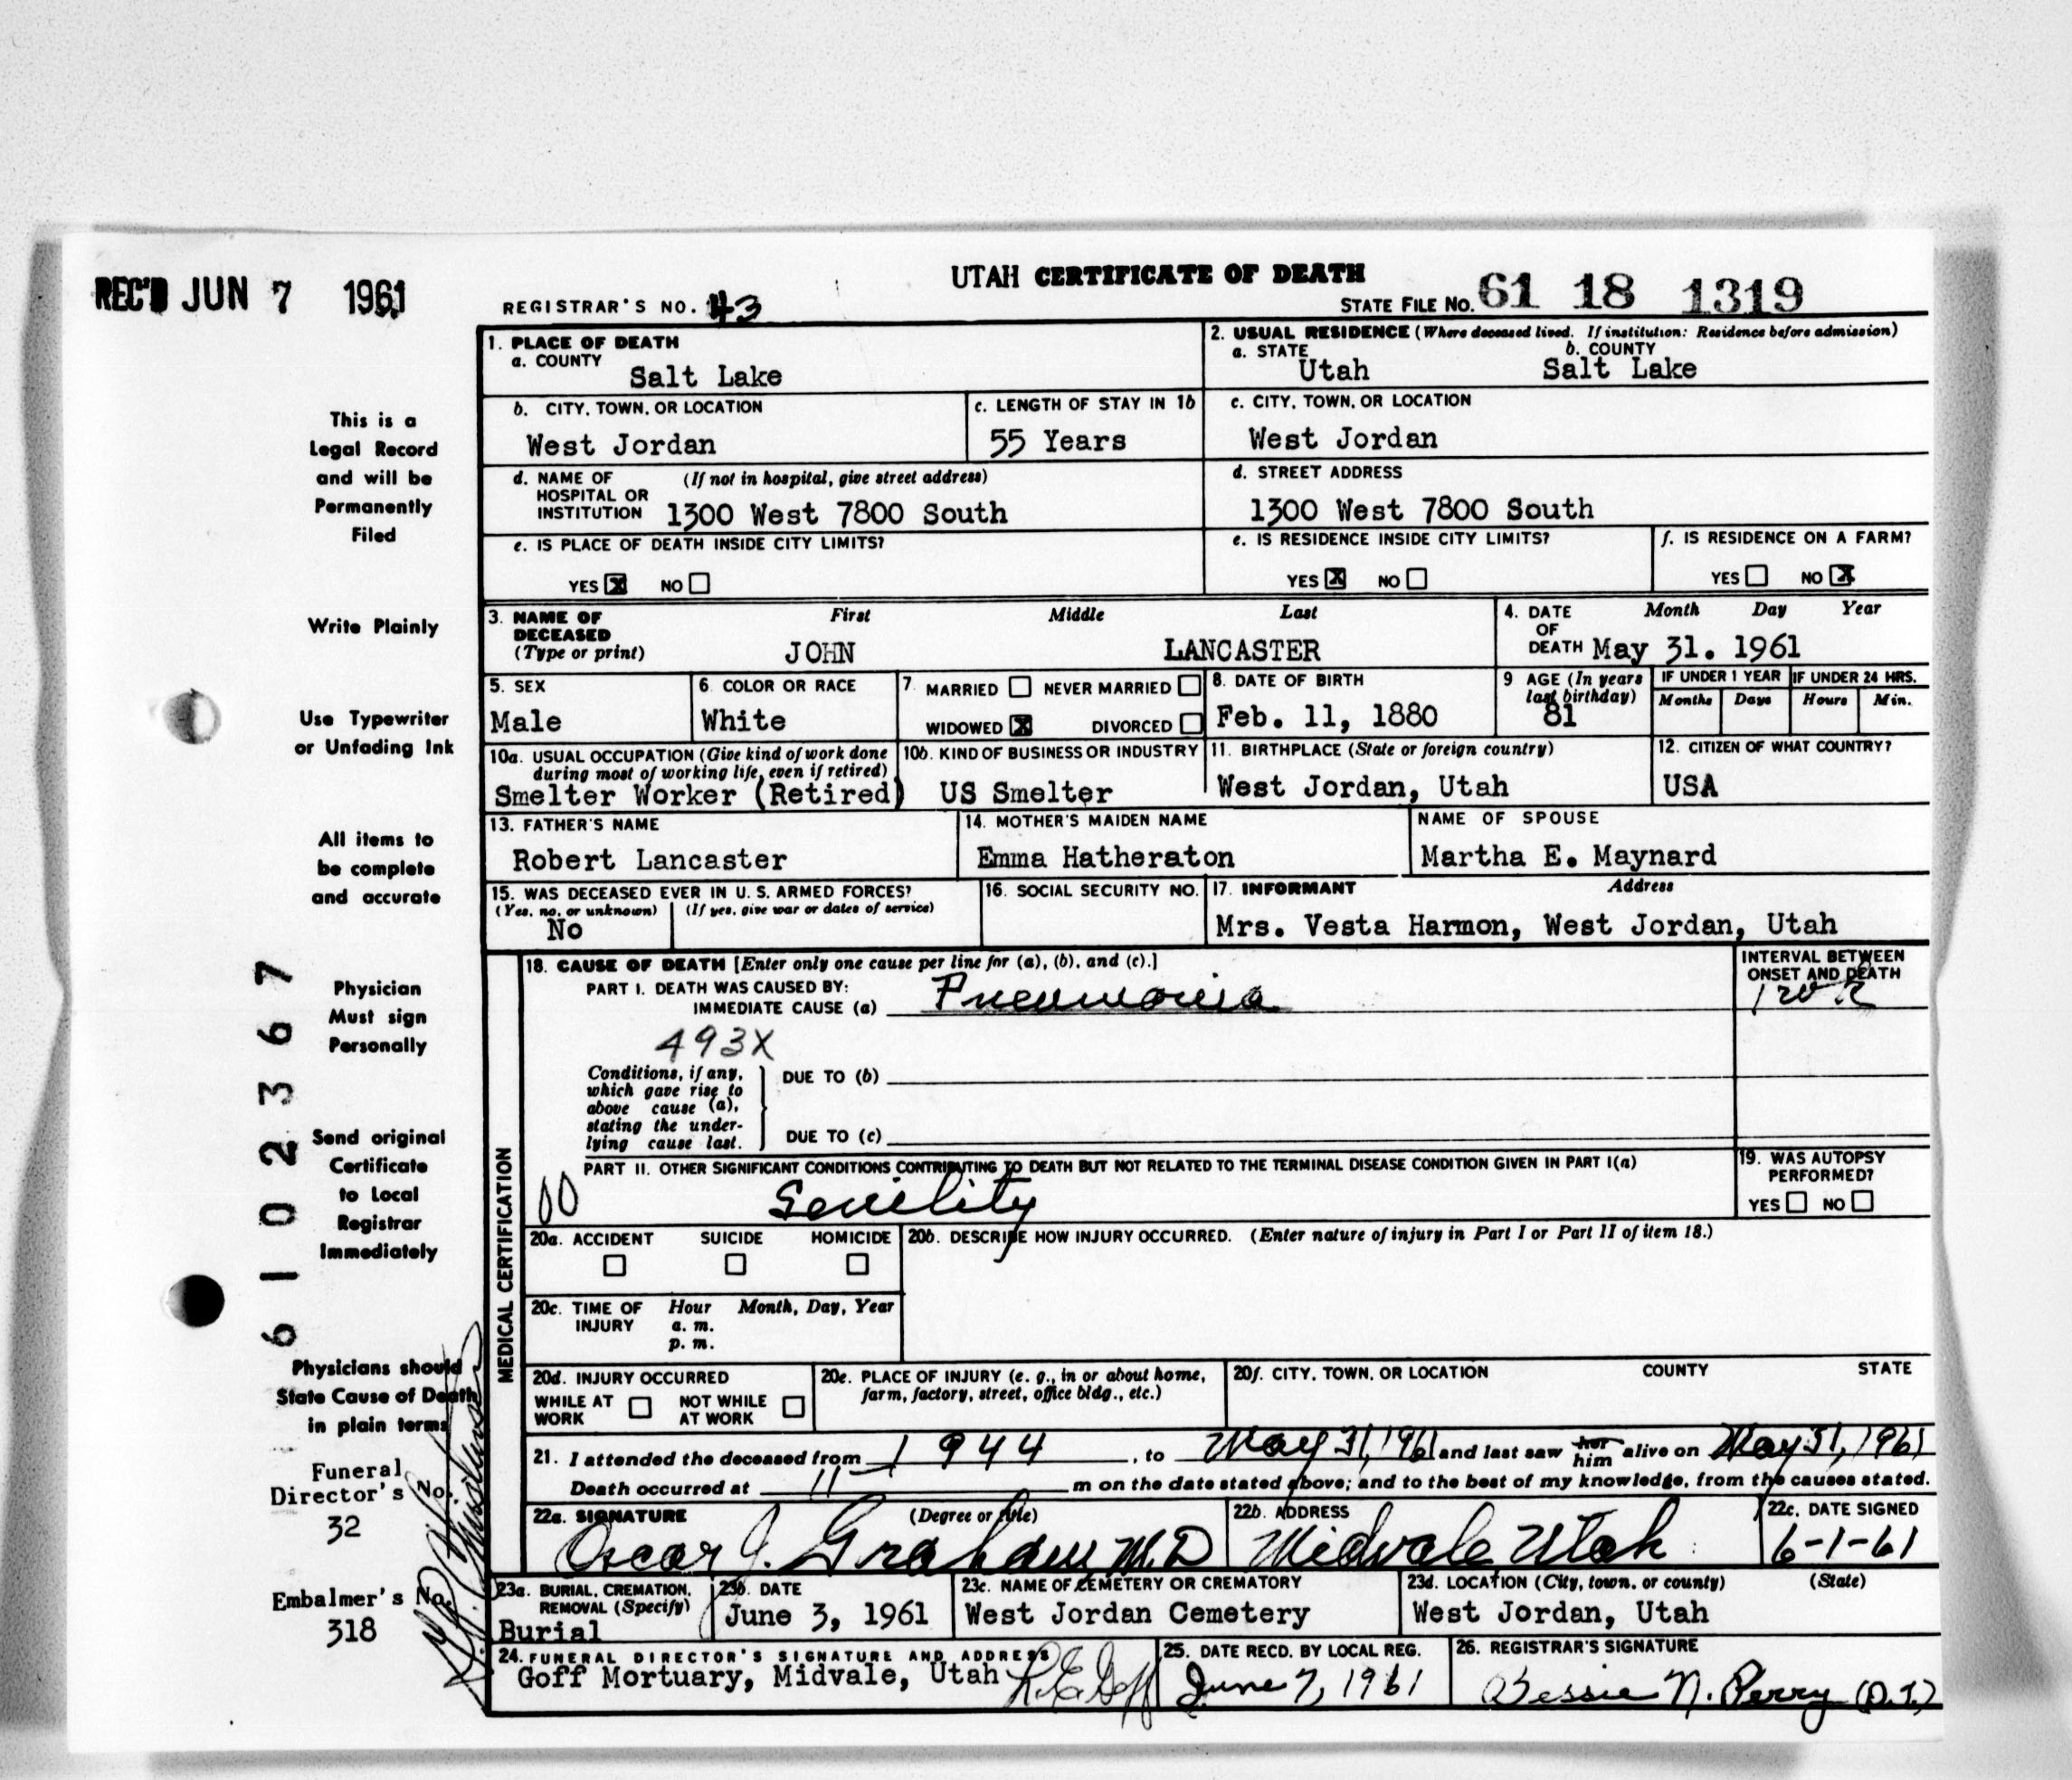 REC'D JUN 7 1961
UTAH CERTIFICATE OF DEATH
REGISTRAR'S NO. 43
STATE FILE NO. 61 18 1319
This is a
Legal Record
and will be
Permanently
Filed
Write Plainly
Use Typewriter
or Unfading Ink
All items to
be complete
and accurate
Physician
Must sign
Personally
Send original
Certificate
to Local
Registrar
Immediately
Physicians should
State Cause of Death
in plain terms
Funeral
Director's No.
32
Embalmer's No.
318
61 02367
1. PLACE OF DEATH
a. COUNTY
Salt Lake
2. USUAL RESIDENCE (Where deceased lived. If institution: Residence before admission)
a. STATE b. COUNTY
Utah Salt Lake
b. CITY, TOWN, OR LOCATION
West Jordan
c. LENGTH OF STAY IN 1b
55 Years
c. CITY, TOWN, OR LOCATION
West Jordan
d. NAME OF (If not in hospital, give street address)
HOSPITAL OR
INSTITUTION 1300 West 7800 South
d. STREET ADDRESS
1300 West 7800 South
e. IS PLACE OF DEATH INSIDE CITY LIMITS?
YES X NO
e. IS RESIDENCE INSIDE CITY LIMITS?
YES X NO
f. IS RESIDENCE ON A FARM?
YES NO X
3. NAME OF DECEASED (Type or print)
First Middle Last
JOHN LANCASTER
4. DATE OF DEATH
Month Day Year
May 31. 1961
5. SEX
Male
6. COLOR OR RACE
White
7. MARRIED NEVER MARRIED
WIDOWED X DIVORCED
8. DATE OF BIRTH
Feb. 11, 1880
9 AGE (In years
last birthday)
81
IF UNDER 1 YEAR
Months Days
IF UNDER 24 HRS.
Hours Min.
10a. USUAL OCCUPATION (Give kind of work done
during most of working life, even if retired)
Smelter Worker (Retired)
10b. KIND OF BUSINESS OR INDUSTRY
US Smelter
11. BIRTHPLACE (State or foreign country)
West Jordan, Utah
12. CITIZEN OF WHAT COUNTRY?
USA
13. FATHER'S NAME
Robert Lancaster
14. MOTHER'S MAIDEN NAME
Emma Hatheraton
NAME OF SPOUSE
Martha E. Maynard
15. WAS DECEASED EVER IN U. S. ARMED FORCES?
(Yes, no, or unknown) (If yes, give war or dates of service)
No
16. SOCIAL SECURITY NO.
17. INFORMANT Address
Mrs. Vesta Harmon, West Jordan, Utah
MEDICAL CERTIFICATION
18. CAUSE OF DEATH [Enter only one cause per line for (a), (b), and (c).]
PART I. DEATH WAS CAUSED BY:
IMMEDIATE CAUSE (a) Pneumonia
INTERVAL BETWEEN
ONSET AND DEATH
493X
Conditions, if any,
which gave rise to
above cause (a),
stating the under-
lying cause last.
DUE TO (b)
DUE TO (c)
PART II. OTHER SIGNIFICANT CONDITIONS CONTRIBUTING TO DEATH BUT NOT RELATED TO THE TERMINAL DISEASE CONDITION GIVEN IN PART I(a)
00 Senility
19. WAS AUTOPSY
PERFORMED?
YES NO
20a. ACCIDENT SUICIDE HOMICIDE
20b. DESCRIBE HOW INJURY OCCURRED. (Enter nature of injury in Part I or Part II of item 18.)
20c. TIME OF INJURY
Hour Month, Day, Year
a. m.
p. m.
20d. INJURY OCCURRED
WHILE AT WORK NOT WHILE AT WORK
20e. PLACE OF INJURY (e. g., in or about home,
farm, factory, street, office bldg., etc.)
20f. CITY, TOWN, OR LOCATION COUNTY STATE
21. I attended the deceased from 1944, to May 31, 1961 and last saw her him alive on May 31, 1961
Death occurred at 11 m on the date stated above; and to the best of my knowledge, from the causes stated.
22a. SIGNATURE (Degree or title)
Oscar J. Graham M.D
22b. ADDRESS
Midvale Utah
22c. DATE SIGNED
6-1-61
23a. BURIAL, CREMATION,
REMOVAL (Specify)
Burial
23b. DATE
June 3, 1961
23c. NAME OF CEMETERY OR CREMATORY
West Jordan Cemetery
23d. LOCATION (City, town, or county) (State)
West Jordan, Utah
24. FUNERAL DIRECTOR'S SIGNATURE AND ADDRESS
Goff Mortuary, Midvale, Utah R.E. Goff
25. DATE RECD. BY LOCAL REG.
June 7, 1961
26. REGISTRAR'S SIGNATURE
Bessie N. Perry (D.I.)